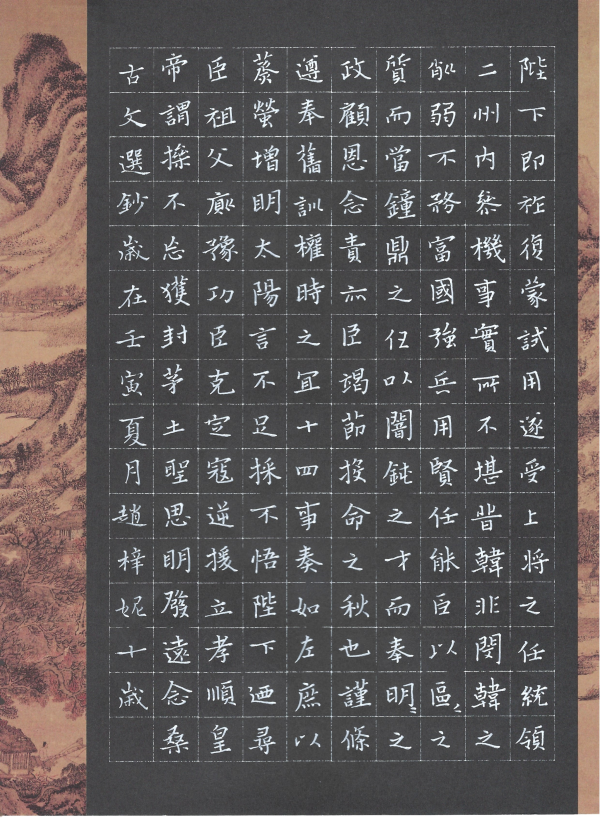 陛下即祚復蒙試用遂受上将之任統領
二州内叅機事實所不堪昔韓非閔韓之
削弱不務富國強兵用賢任能臣以區〻之
質而當鐘鼎之任以闇鈍之才而奉明〻之
政顧恩念責亦臣竭節投命之秋也謹條
遵奉舊訓權時之宜十四事奏如左庶以
蒸螢增明太陽言不足採不悟陛下迺尋
臣祖父廞豫功臣克定寇逆援立孝順皇
帝謂操不忘獲封茅土聖思明發遠念桑
古文選鈔歲在壬寅夏月趙梓妮十歲